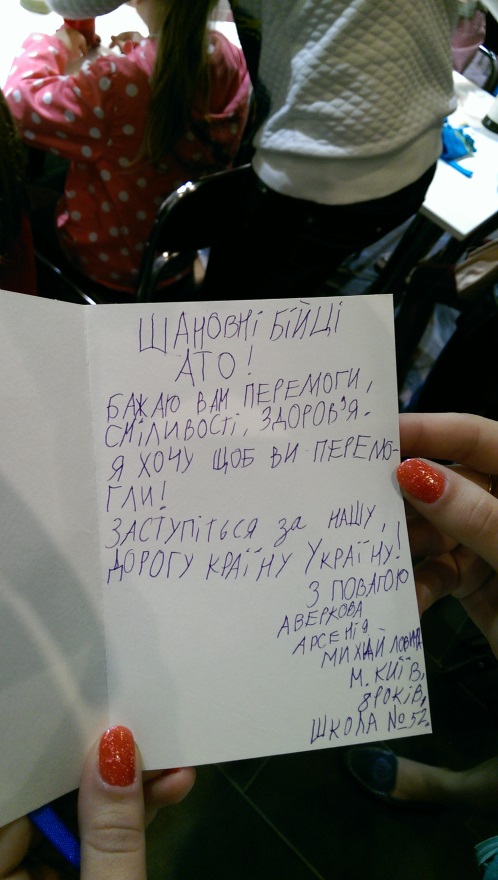 ШАНОВНІ БІЙЦІ
АТО!
БАЖАЮ ВАМ ПЕРЕМОГИ,
СМІЛИВОСТІ, ЗДОРОВ'Я.
Я ХОЧУ ЩОБ ВИ ПЕРЕМО-
ГЛИ!
ЗАСТУПІТЬСЯ за НАШУ,
ДОРОГУ КРАЇНУ УКРАЇНУ!
З ПОВАГОЮ
АВЕРКОВА
АРСЕНІЯ
МИХАЙЛОВИЧ
М. КИЇВ,
8 РОКІВ,
ШКОЛА № 52.